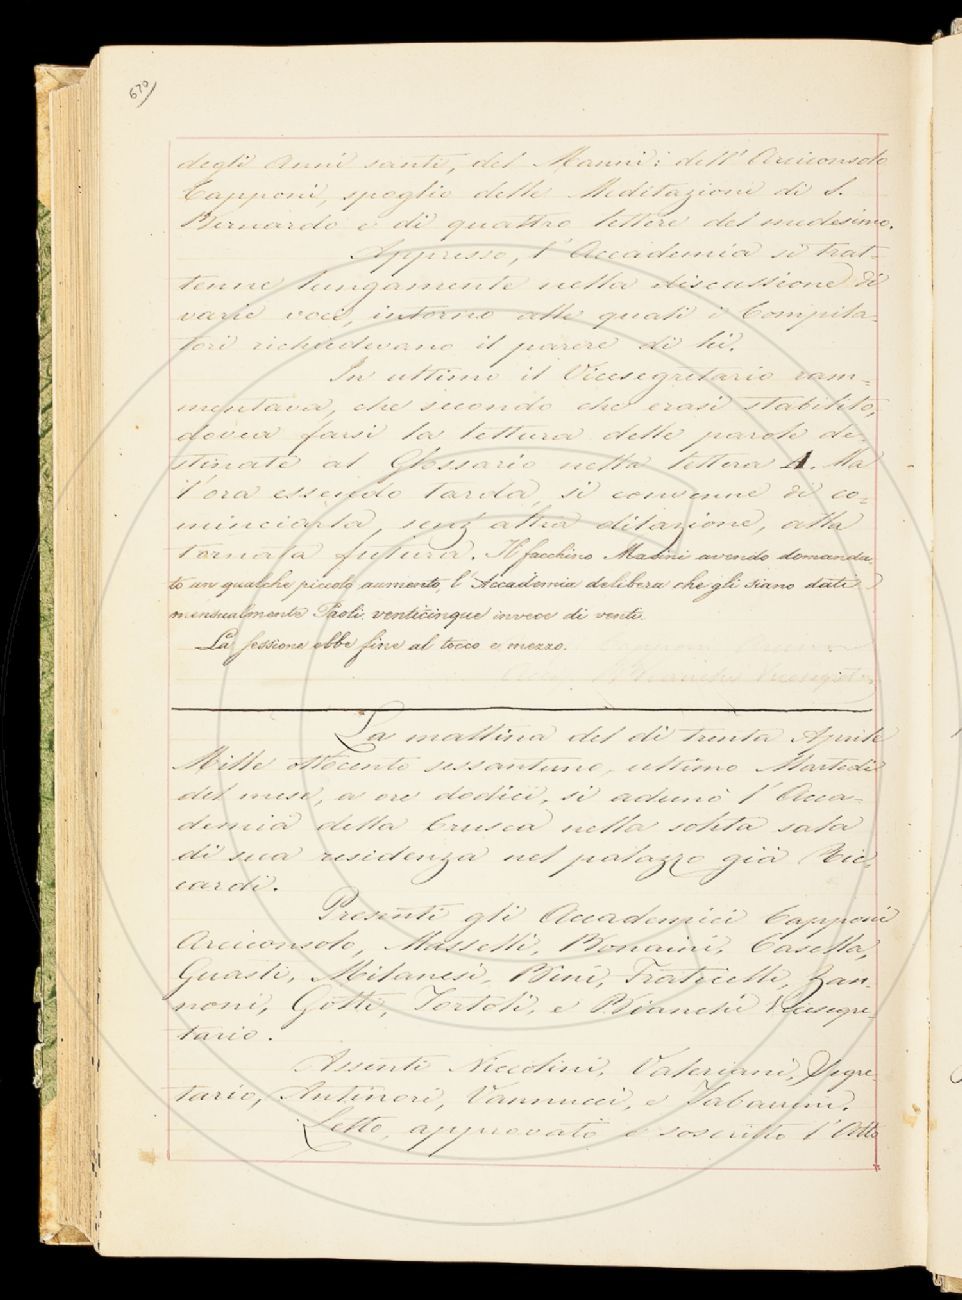 670
degli Anni santi, del Manni: dell'Arciconsolo
Capponi, spoglio delle Meditazioni di S.
Bernardo e di quattro lettere del medesimo.
Appresso, l'Accademia si trat-
tenne lungamente nella discussione di
varie voci, intorno alle quali i Compila-
tori richiedevano il parere di lei.
In ultimo il Vicesegretario ram-
mentava, che secondo che erasi stabilito,
dovea farsi la lettura delle parole de-
stinate al Glossario nella lettera A. Ma
l'ora essendo tarda, si convenne di co-
minciarla, senz'altra dilazione, alla
tornata futura. Il facchino Masini avendo domanda-
to un qualche piccolo aumento, l'Accademia delibera che gli siano dati
mensualmente Paoli venticinque invece di venti.
La sessione ebbe fine al tocco e mezzo.
Capponi
Bianchi Vicesegret.
La mattina del dì trenta Aprile
Mille ottocento sessantuno, ultimo Martedì
del mese, a ore dodici, si adunò l'Acca-
demia della Crusca nella solita sala
di sua residenza nel palazzo già Ric-
cardi.
Presenti gli Accademici Capponi
Arciconsolo, Masselli, Bonaini, Casella,
Guasti, Milanesi, Bini, Fraticelli, Zan-
noni, Gotti, Tortoli, e Bianchi Vicesegre-
tario.
Assenti Niccolini, Valeriani, Segre-
tario, Antinori, Vannucci, e Tabarrini.
Letto, approvato e soscritto l'Atto